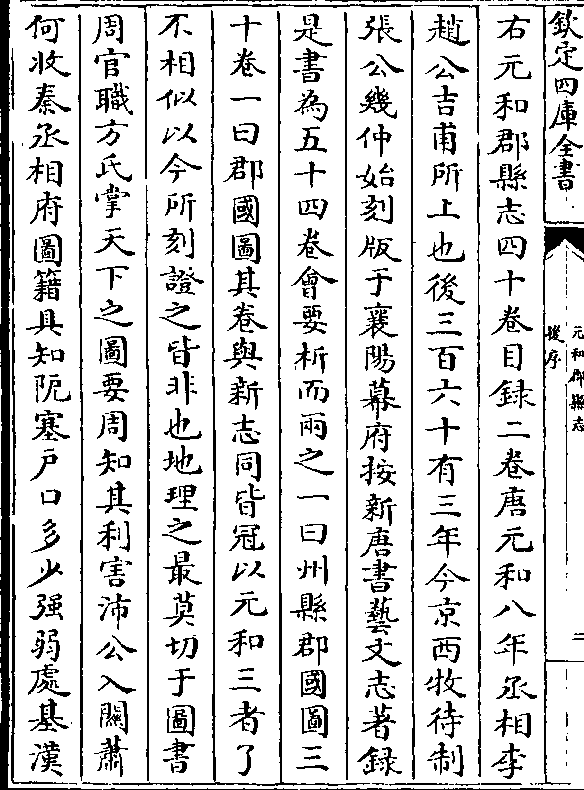 欽定四庫全書
元和郡縣志
後序
二
右元和郡縣志四十卷目録二卷唐元和八年丞相李
趙公吉甫所上也後三百六十有三年今京西牧待制
張公幾仲始刻版于襄陽幕府按新唐書藝文志著録
是書為五十四卷會要析而兩之一曰州縣郡國圖三
十卷一曰郡國圖其卷與新志同皆冠以元和三者了
不相似以今所刻證之皆非也地理之最莫切于圖書
周官職方氏掌天下之圖要周知其利害沛公入關蕭
何收秦丞相府圖籍具知阨塞户口多少强弱處基漢